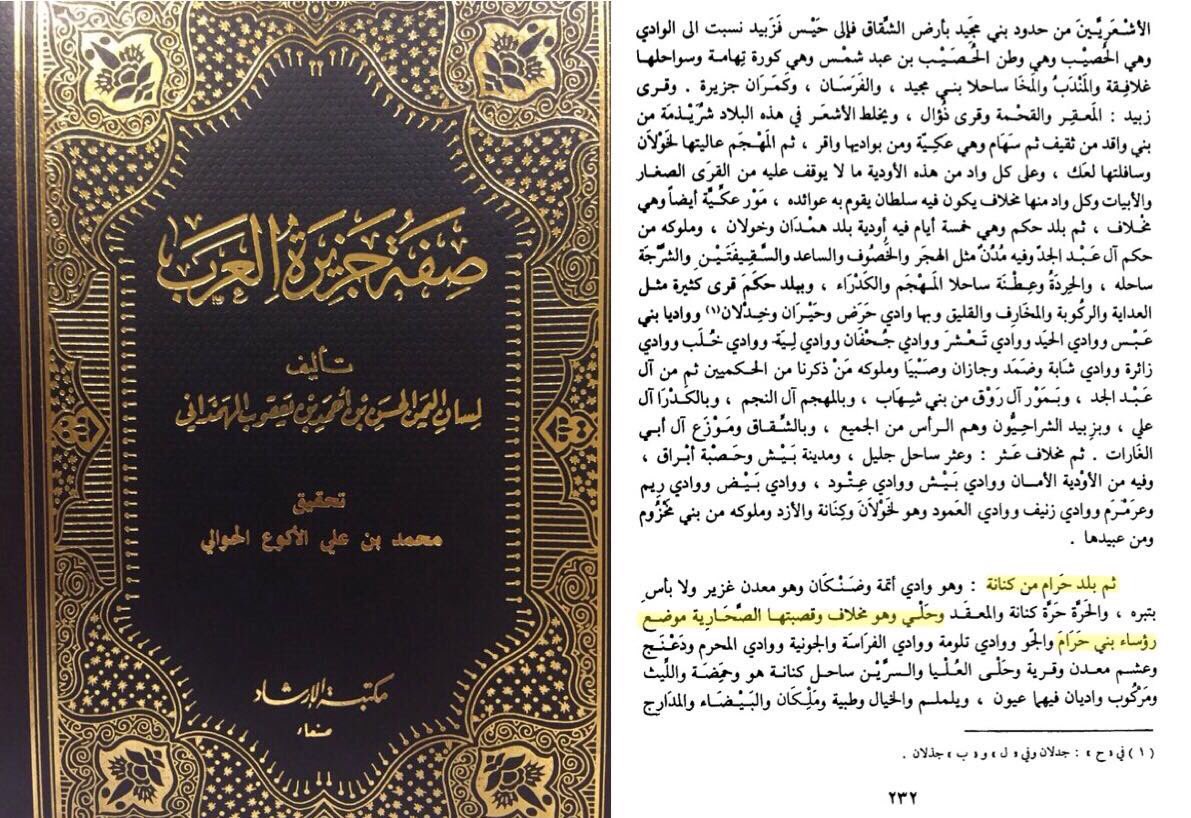 صفة جزيرة العرب
تأليف
لسان اليمن الحسن بن أحمد بن يعقوب الهمداني
تحقيق
محمد بن علي الأكوع الحوالي
مكتبة الإرشاد
صنعاء
الأشْعَريِّينَ من حدود بني مجيد بأرض الشِّقاق فإلى حَيْس فَزَبيد نسبت الى الوادي
وهي الحُصيْب وهي وطن الحُصَيْب بن عبد شمْس وهي كورة تهامة وسواحلها
غلافقة والمَنْدَبُ والمخَا ساحلا بني مجيد ، والفَرَسَان ، وكمَرَان جزيرة . وقرى
زبيد : المَعقِر والقحْمة وقرى ذُؤال ، ويخلط الأشعَر في هذه البلاد شُرَيْذمَة من
بني واقد من ثقيف ثم سَهَام وهي عكيّة ومن بواديها واقر ، ثم المَهْجَم عاليتها لخَوْلاَن
وسافلتها لعَك ، وعلى كل واد من هذه الأودية ما لا يوقف عليه من القرَى الصغار
والأبيات وكل واد منها مخلاف يكون فيه سلطان يقوم به عوائده ، مَوْر عكيَّة أيضاً وهي
مخلاف ، ثم بلد حكم وهي خمسة أيام فيه أودية بلد همْدَان وخولان ، وملوكه من
حكم آل عَبْد الجدّ وفيه مُدُنٌ مثل الهجَر والخَصُوف والساعد والسَّقِيفَتَيْن والشَّرْجَة
ساحله ، والحِردَةُ وعِطْنَة ساحلا المَهْجَم والكدْرَاء ، وببلد حكَمَ قرى كثيرة مثل
العداية والركُوبة والمخَارِف والقليق وبها وادي حَرَض وحَيْرَان وخِدْلان(١) وواديا بني
عَبْس ووادي الحَيَد ووادي تَعْشَر ووادي جُحْفَان ووادي لِيَة ووادي خُلَب ووادي
زائرة ووادي شَابة وضَمَد وجازان وصَبْيَا وملوكه مَنْ ذكرنا من الحكميين ثم من آل
عَبْد الجد ، وبَمَوْر آل رَوْق من بني شهَاب ، وبالمهجم آل النجم ، وبالكَدْرَا آل
علي ، وبزبيد الشراحيُّون وهم الرأس من الجميع ، وبالشَّقاق ومَوْزَع آل أبي
الغارات . ثم مخلاف عَثر : وعثر ساحل جليل ، ومدينة بَيْش وحَصْبة أبْراق ،
وفيه من الأوْدية الأمان ووادي بَيْش ووادي عِتْود ، ووادي بَيْض ووادي ريم
وعرمْرَم ووادي زنيف ووادي العَمود وهو لخَوْلاَنَ وكِنانة والأزد وملوكه من بني مَخْزُوم
ومن عبيدها .
ثم بلد حَرَام من كنانة : وهو وادي أثمة وضَنْكَان وهو معدن غزير ولا بأس
بتبره ، والحَرَّة حَرَّة كنانة والمعقَد وحَلْي وهو مخلاف وقصبتها الصَّحَارية موضع
رؤساء بني حَرَامَ والجَو ووادي تلومة ووادي الفرَاسَة والجونية ووادي المحرم ودَعْنَج
وعشم معدن وقرية وحَلْى العُلْيا والسرَّيْن ساحل كنانة هو وحمِضَة واللِّيث
ومَرْكُوب واديان فيهما عيون ، ويلملم والخيال وطبية ومَلْكَان والبَيْضَاء والمدَارِج
(١) في «ح» : جدلان وفي «ل» و«ب» جذلان .
٢٣٢